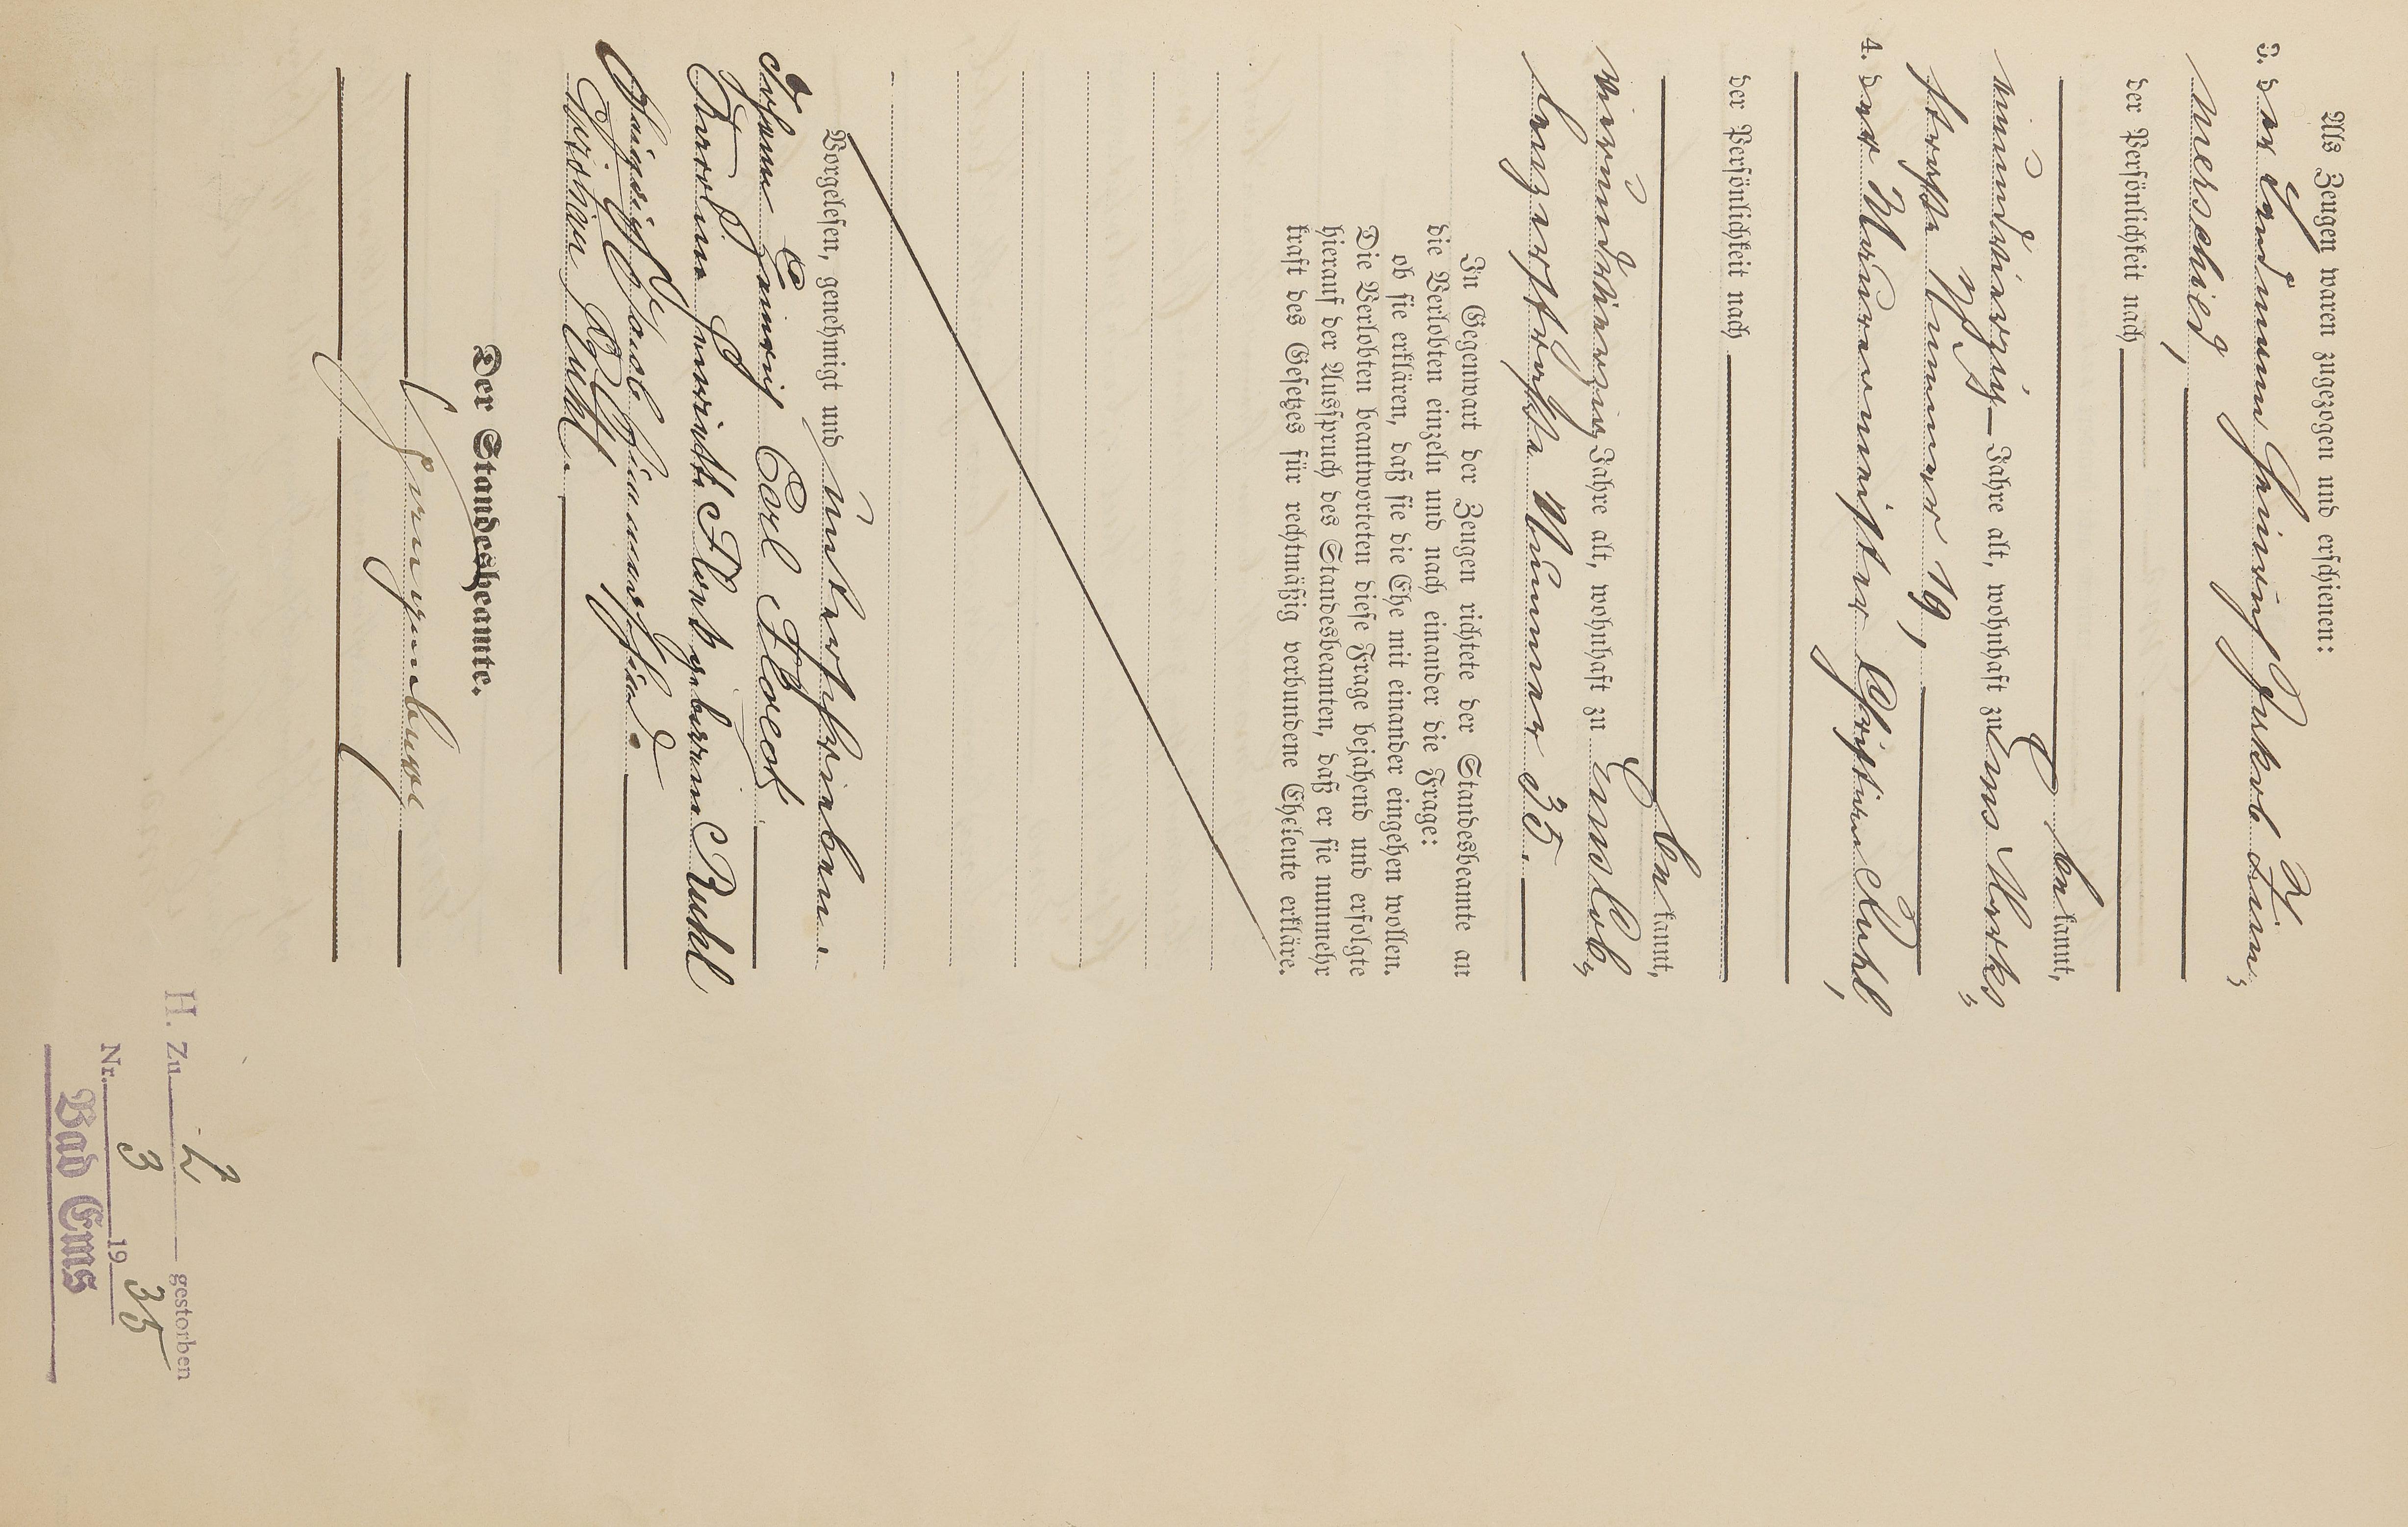 Als Zeugen waren zugezogen und erschienen:
3. der Landmann Heinrich Jakob Zim=
merschied,
der Persönlichkeit nach
bekannt,
neunundvierzig Jahre alt, wohnhaft zu Ems Mark=
straße Nummer 19,
4. der Maurermeister Christian Ruhl,
der Persönlichkeit nach
bekannt,
vierundvierzig Jahre alt, wohnhaft zu Ems Cob=
lenzerstraße Nummer 35.
In Gegenwart der Zeugen richtete der Standesbeamte an
die Verlobten einzeln und nach einander die Frage:
ob sie erklären, daß sie die Ehe mit einander eingehen wollen.
Die Verlobten beantworteten diese Frage bejahend und erfolgte
hierauf der Ausspruch des Standesbeamten, daß er sie nunmehr
kraft des Gesetzes für rechtmäßig verbundene Eheleute erkläre.
Vorgelesen, genehmigt und unterschrieben.
Johann Heinrich Carl Flöck
Karoline Henriette Flöck geborene Ruhl
Heinrich Jacob Zimmerschied.
Christian Ruhl.
Der Standesbeamte.
H. Zu 2 gestorben
Nr. 3 1935
Bad Ems